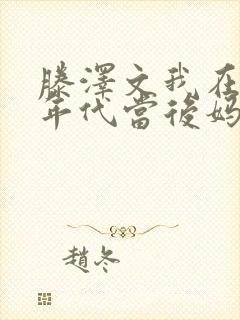 滕澤文我在
年代當後媽
趙冬